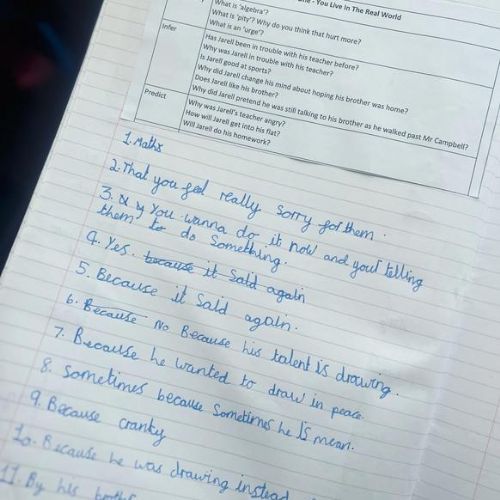 You Live In The Real World
What is 'algebra'?
What is 'pity'? Why do you think that hurt more?
What is an 'urge'?
Infer
Has Jarell been in trouble with his teacher before?
Why was Jarell in trouble with his teacher?
Is Jarell good at sports?
Why did Jarell change his mind about hoping his brother was home?
Does Jarell like his brother?
Why did Jarell pretend he was still talking to his brother as he walked past Mr Campbell?
Predict
Why was Jarell's teacher angry?
How will Jarell get into his flat?
Will Jarell do his homework?
1. Maths
2. That you feel really sorry for them.
3. You wanna do it now and your telling
them to do something.
4. Yes. because it said again
5. Because it said again.
6. Because No Because his talent is drawing.
7. Because he wanted to draw in peace.
8. Sometimes because sometimes he is mean.
9. Because cranky
10. Because he was drawing instead
11. By his